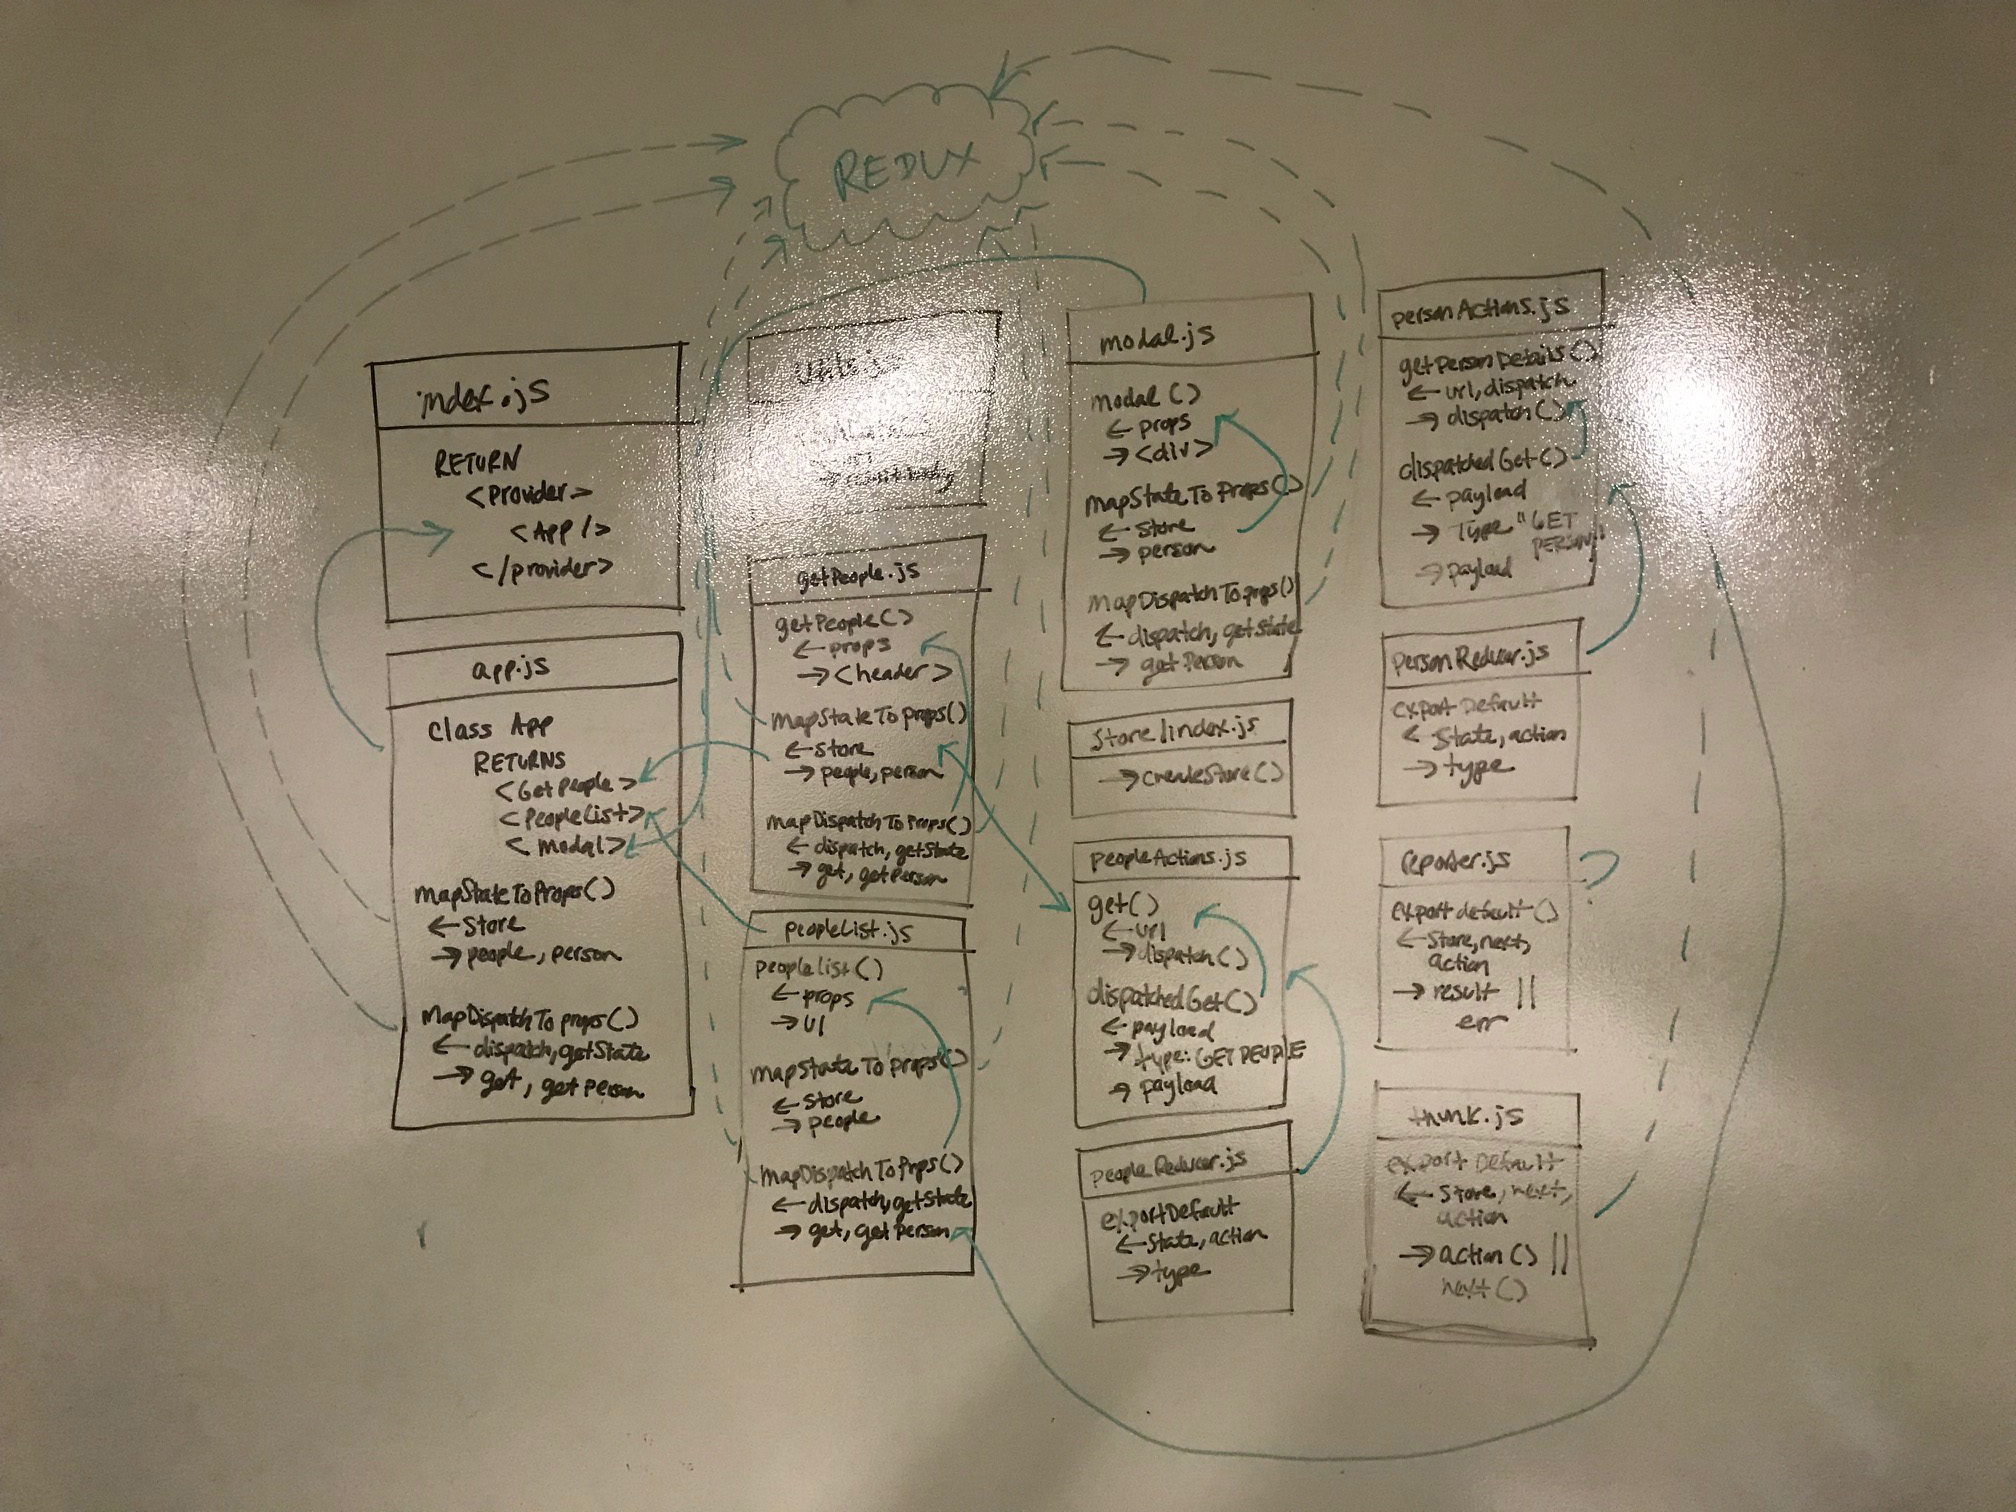 REDUX
index.js
RETURN
<Provider>
<App/>
</provider>
app.js
class App
RETURNS
<GetPeople>
<PeopleList>
<modal>
mapStateToProps()
← store
→ people, person
mapDispatchToprops()
← dispatch, getState
→ get, getPerson
getPeople.js
getPeople()
← props
→ <header>
mapStateToProps()
← store
→ people, person
mapDispatchToProps()
← dispatch, getState
→ get, getPerson
peopleList.js
peoplelist()
← props
→ ul
mapStateToProps()
← store
→ people
mapDispatchToProps()
← dispatch, getState
→ get, getPerson
modal.js
modal()
← props
→ <div>
mapStateToProps()
← store
→ person
mapDispatchToprops()
← dispatch, getState
→ getPerson
store/index.js
→ createStore()
peopleActions.js
get()
← url
→ dispatch()
dispatchedGet()
← payload
→ type: GET PEOPLE
→ payload
peopleReducer.js
exportDefault
← state, action
→ type
personActions.js
getPersonDetails()
← url, dispatch
→ dispatch()
dispatchedGet()
← payload
→ Type "GET
PERSON"
→ payload
personReducer.js
export Default
← state, action
→ type
reporter.js
?
export default()
← store, next,
action
→ result ||
err
thunk.js
export Default
← store, next,
action
→ action() ||
next()